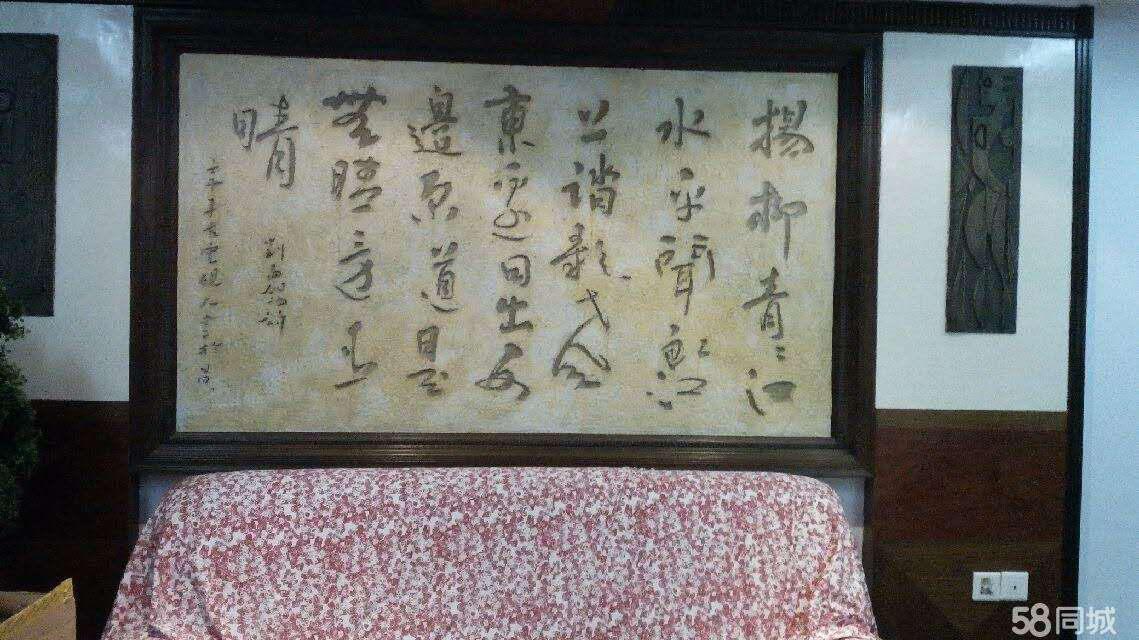 楊柳青〻江
水平聞郎江
上踏歌声
東邊日出西
邊雨道是
無晴還有
晴
劉禹錫詩
58同城